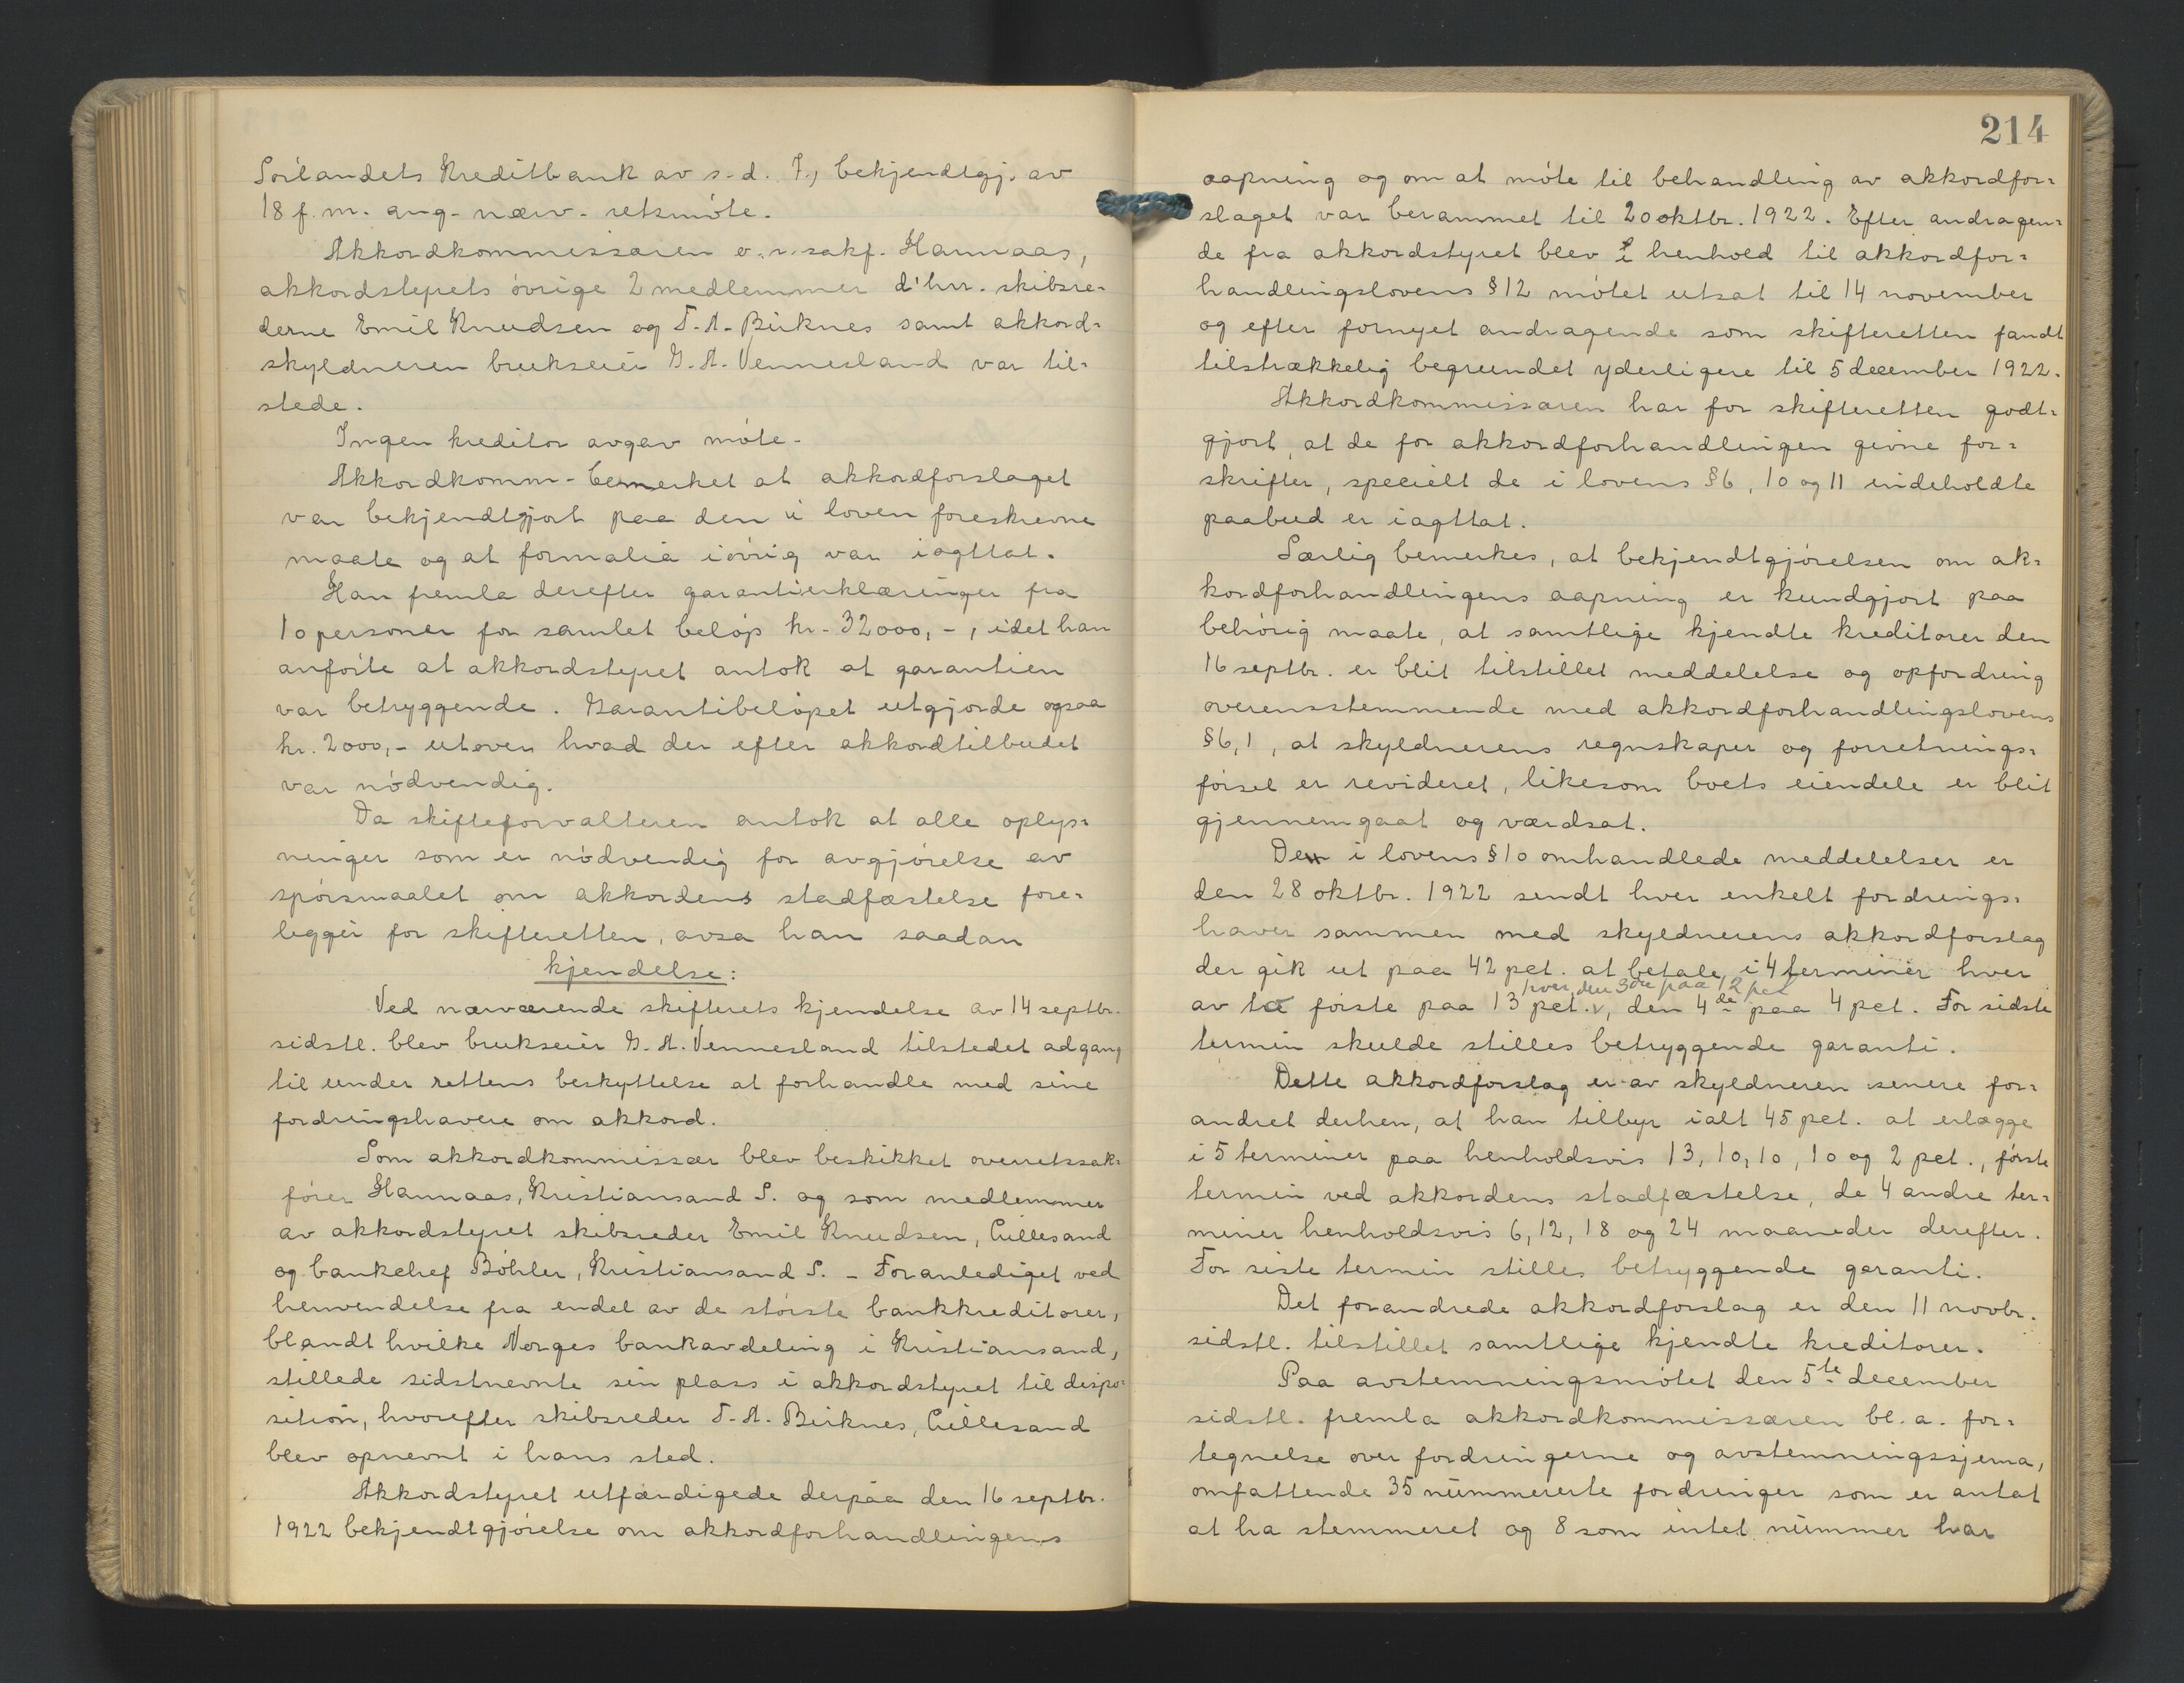 Sörlandets Kreditbank av s.d. 7., bekjendtgj. av
18 f.m. ang. nærv. retsmöte.
Akkordkommissæren o.r.sakf. Hannaas,
akkordstyrets övrige 2 medlemmer d'hrr. skibsre-
derne Emil Knudsen og T. A. Birknes samt akkord-
skyldneren brukseier G. A. Vennesland var til-
stede.
Ingen kreditor avgav möte.
Akkordkomm. bemerket at akkordforslaget
var bekjendtgjort paa den i loven foreskrevne
maate og at formalia iövrig var iagttat.
Han fremla derefter garantierklæringer fra
10 personer for samlet belöp kr. 32000,-, idet han
anförte at akkordstyret antok at garantien
var betryggende. Garantibelöpet utgjorde ogsaa
kr. 2000,- utover hvad der efter akkordtilbudet
var nödvendig.
Da skifteforvalteren antok at alle oplys-
ninger som er nödvendig for avgjörelse av
spörsmaalet om akkordens stadfæstelse fore-
legger for skifteretten, avsa han saadan
kjendelse:
Ved nærværende skifterets kjendelse av 14 septbr.
sidstl. blev brukseier G. A. Vennesland tilstedet adgang
til under rettens beskyttelse at forhandle med sine
fordringshavere om akkord.
Som akkordkommissær blev beskikket overretssak-
förer Hannaas, Kristiansand S. og som medlemmer
av akkordstyret skibsreder Emil Knudsen, Lillesand
og bankchef Böhler, Kristiansand S. - Foranlediget ved
henvendelse fra endel av de störste bankkreditorer,
blandt hvilke Norges bankavdeling i Kristiansand,
stillede sidstnevnte sin plass i akkordstyret til dispo-
sition, hvorefter skibsreder T. A. Birknes, Lillesand
blev opnevnt i hans sted.
Akkordstyret utfærdigede derpaa den 16 septbr.
1922 bekjendtgjörelse om akkordforhandlingens
214
aapning og om at möte til behandling av akkordfor-
slaget var berammet til 20 oktbr. 1922. Efter andragen-
de fra akkordstyret blev i henhold til akkordfor-
handlingslovens §12 mötet utsat til 14 november
og efter fornyet andragende som skifteretten fandt
tilstrækkelig begrundet yderligere til 5 december 1922.
Akkordkommissæren har for skifteretten godt-
gjort, at de for akkordforhandlingen givne for-
skrifter, specielt de i lovens §6, 10 og 11 indeholdte
paabud er iagttat.
Særlig bemerkes, at bekjendtgjörelsen om ak-
kordforhandlingens aapning er kundgjort paa
behörig maate, at samtlige kjendte kreditorer den
16 septbr. er blit tilstillet meddelelse og opfordring
overensstemmende med akkordforhandlingslovens
§6,1, at skyldnerens regnskaper og forretnings-
försel er revideret, likesom boets eiendele er blit
gjennemgaat og værdsat.
De i lovens §10 omhandlede meddelelser er
den 28 oktbr. 1922 sendt hver enkelt fordrings-
haver sammen med skyldnerens akkordforslag
der gik ut paa 42 pct. at betale i 4 terminer hver
hver, den 3die paa 12 pct
av to förste paa 13 pct. v, den 4de paa 4 pct. For sidste
termin skulde stilles betryggende garanti.
Dette akkordforslag er av skyldneren senere for-
andret derhen, at han tilbyr ialt 45 pct. at erlægge
i 5 terminer paa henholdsvis 13, 10, 10, 10 og 2 pct., förste
termin ved akkordens stadfæstelse, de 4 andre ter-
miner henholdsvis 6, 12, 18 og 24 maaneder derefter.
For siste termin stilles betryggende garanti.
Det forandrede akkordforslag er den 11 novbr.
sidstl. tilstillet samtlige kjendte kreditorer.
Paa avstemningsmötet den 5te december
sidstl. fremla akkordkommissæren bl.a. for-
tegnelse over fordringerne og avstemningssjema,
omfattende 35 nummererte fordringer som er antat
at ha stemmeret og 8 som intet nummer har